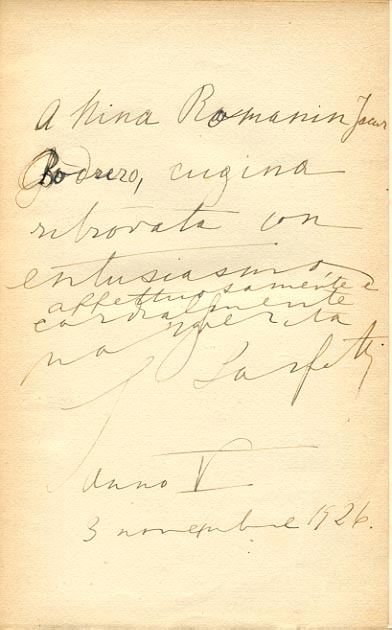 A Nina Romanin Jacur
Bodrero, cugina
ritrovata con
entusiasmo
affettuosamente e
cordialmente
Margherita
Sarfatti
Anno V
3 novembre 1926.